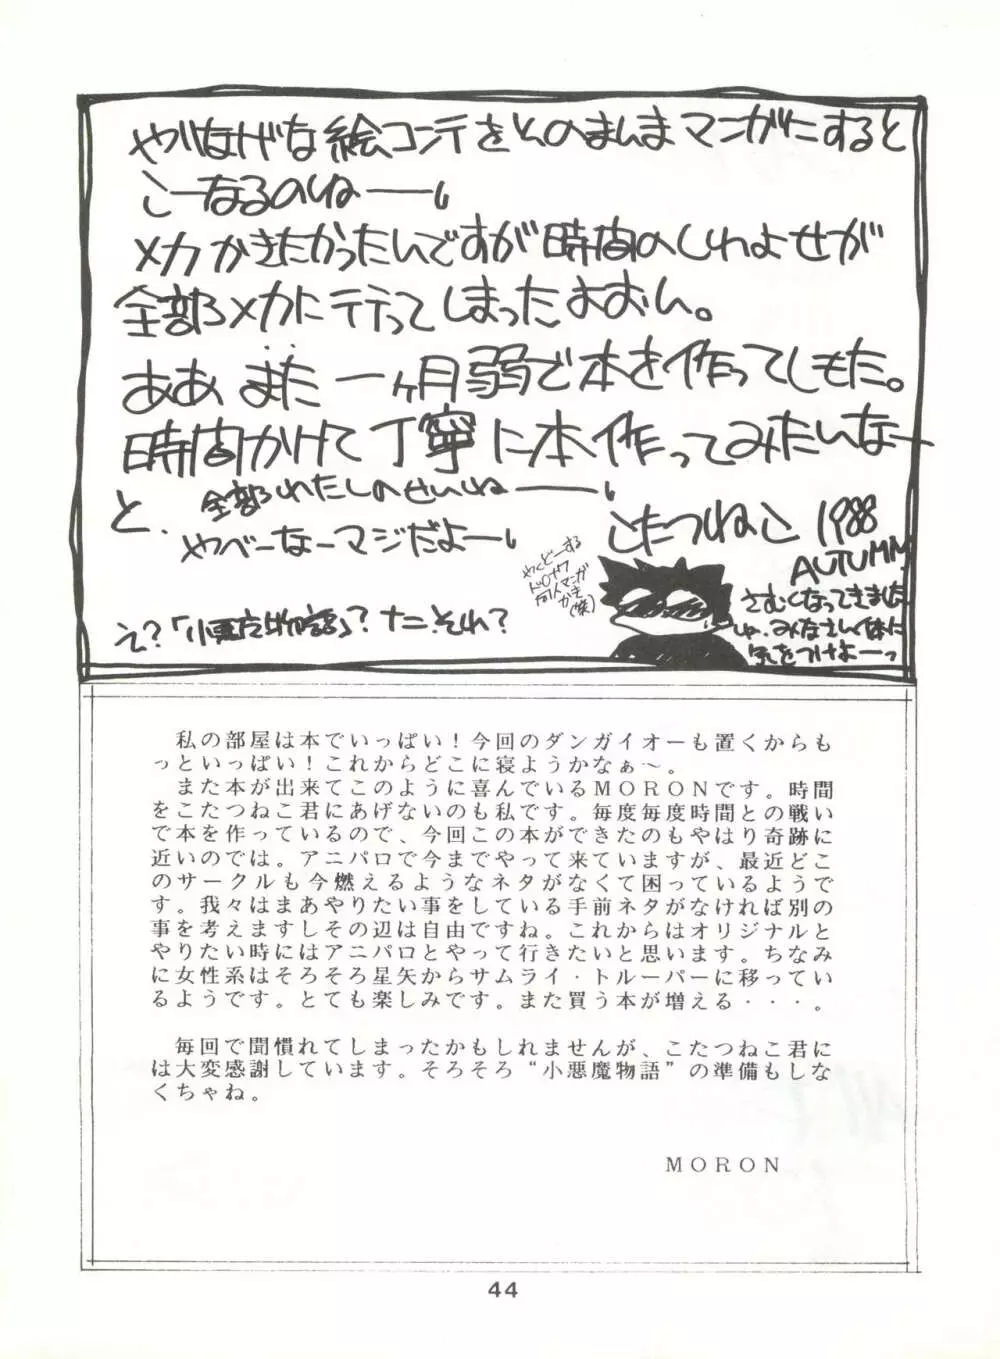 やりなげな絵コンテをそのまんまマンガにすると
こーなるのねー
メカかきたかったんですが時間のしわよせが
全部メカに行ってしまったよおん。
ああ、また一ヶ月弱で本を作ってしもた。
時間かけて丁寧に本作ってみたいなー
と、全部わたしのせいねー
やべーなーマジだよー
こたつねこ 1988
AUTUMN
さむくなってきました
みなさん体に
気をつけよーっ
え?「小悪魔物語」?ナニそれ?
私の部屋は本でいっぱい!今回のダンガイオーも置くからも
っといっぱい!これからどこに寝ようかなぁ~。
また本が出来てこのように喜んでいるMORONです。時間
をこたつねこ君にあげないのも私です。毎度毎度時間との戦い
で本を作っているので、今回この本ができたのもやはり奇跡に
近いのでは。アニパロで今までやって来ていますが、最近どこ
のサークルも今燃えるようなネタがなくて困っているようで
す。我々はまあやりたい事をしている手前ネタがなければ別の
事を考えますしその辺は自由ですね。これからはオリジナルと
やりたい時にはアニパロとやって行きたいと思います。ちなみ
に女性系はそろそろ星矢からサムライ・トルーパーに移ってい
るようです。とても楽しみです。また買う本が増える・・・。
毎回で聞慣れてしまったかもしれませんが、こたつねこ君に
は大変感謝しています。そろそろ“小悪魔物語”の準備もしな
くちゃね。
MORON
44